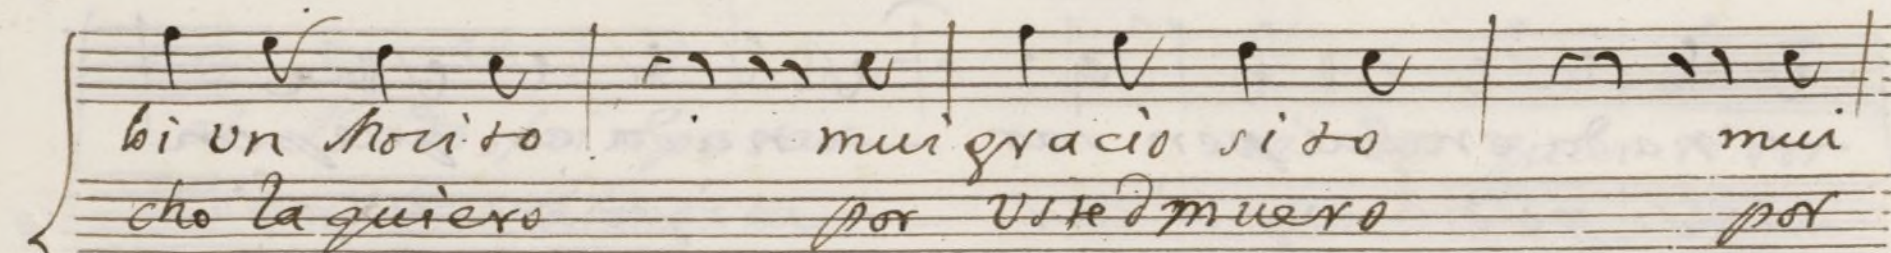 bi un Morito mui gracio sito mui
cho la quiero por Usted muero por